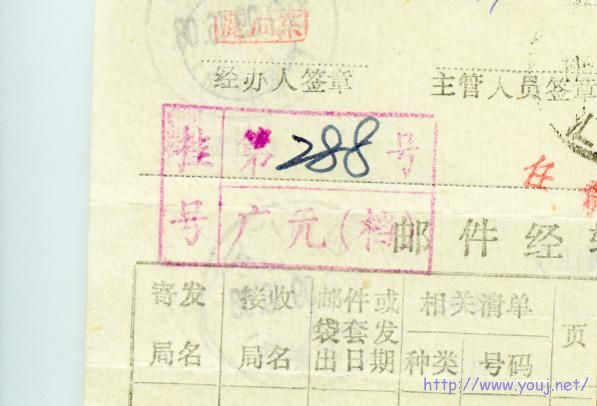 经办人签章 主管人员签章
挂号 第288号
广元(档)
邮件经
寄发局名 接收局名 邮件或袋套发出日期 相关清单 页
种类 号码
http://www.youj.net/